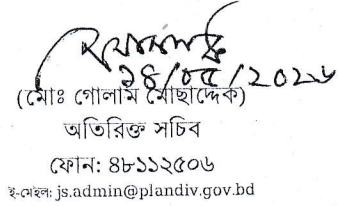 ১৪/০৫/২০২৬
(মোঃ গোলাম মোছাদ্দেক)
অতিরিক্ত সচিব
ফোন: ৪৮১১২৫০৬
ই-মেইল: js.admin@plandiv.gov.bd